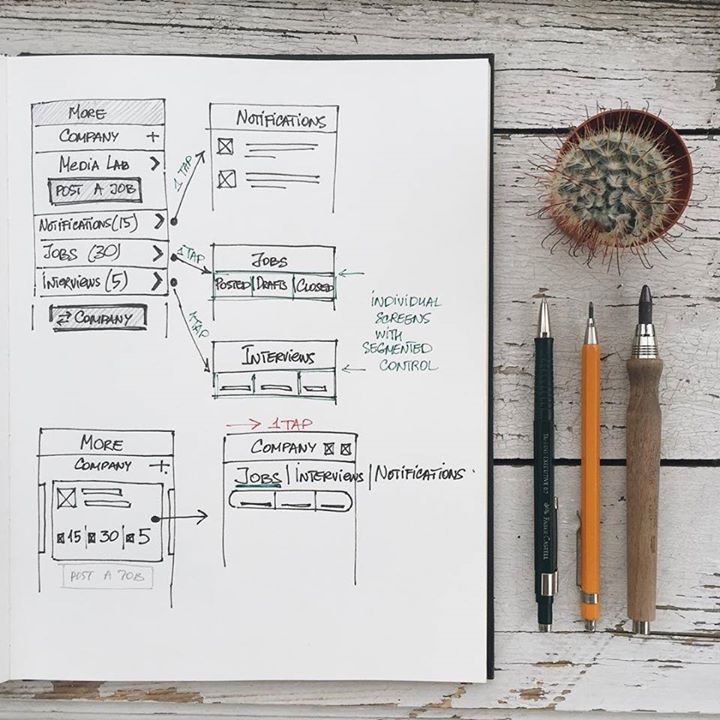 MORE
COMPANY +
MEDIA LAB >
POST A JOB
NOTIFICATIONS (15) >
JOBS (30) >
INTERVIEWS (5) >
⇄ COMPANY
1 TAP
1 TAP
1 TAP
NOTIFICATIONS
JOBS
POSTED | DRAFTS | CLOSED
INTERVIEWS
INDIVIDUAL
SCREENS
WITH
SEGMENTED
CONTROL
MORE
COMPANY +
15 | 30 | 5
POST A JOB
→ 1 TAP
COMPANY
JOBS | INTERVIEWS | NOTIFICATIONS